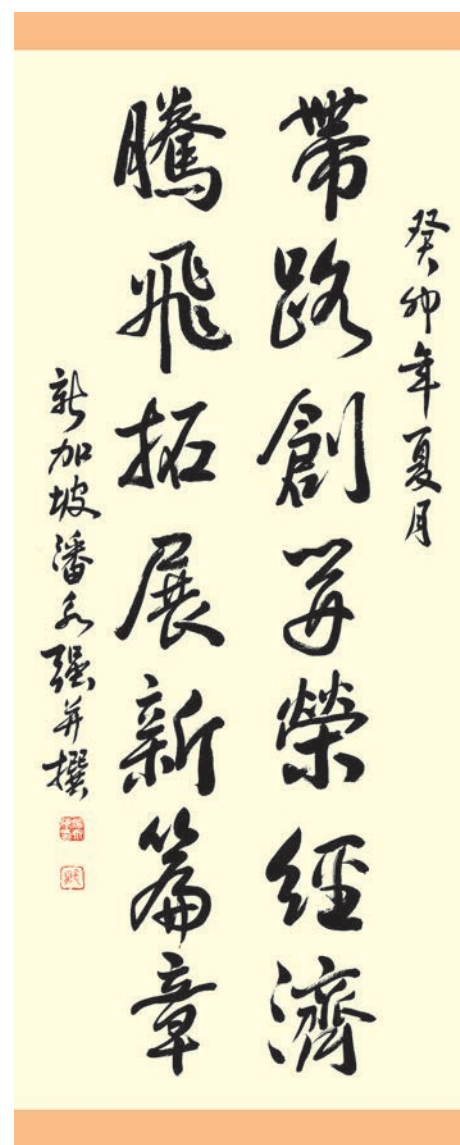 癸卯年夏月
帶路創共榮經濟
騰飛拓展新篇章
新加坡潘永强并撰